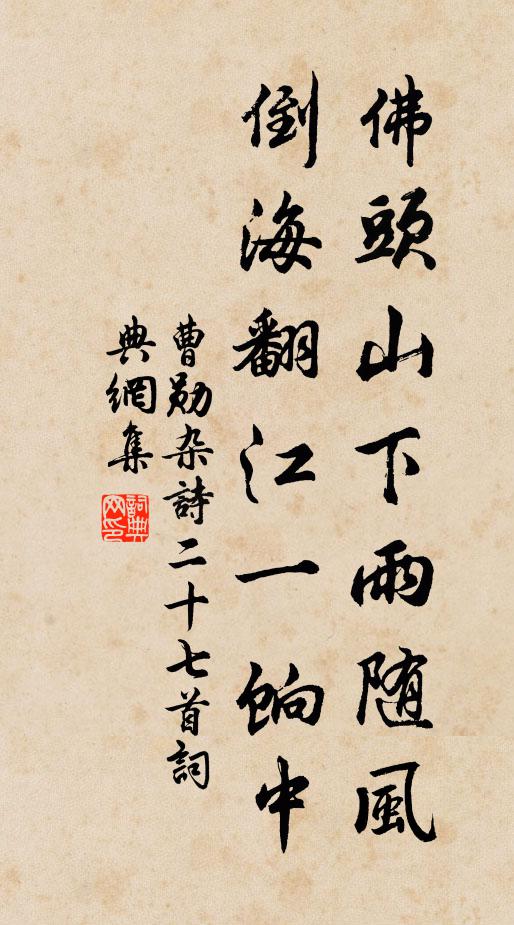 佛頭山下雨随風
倒海翻江一餉中
曹勛杂詩二十七首詞
典網集
詞典网印